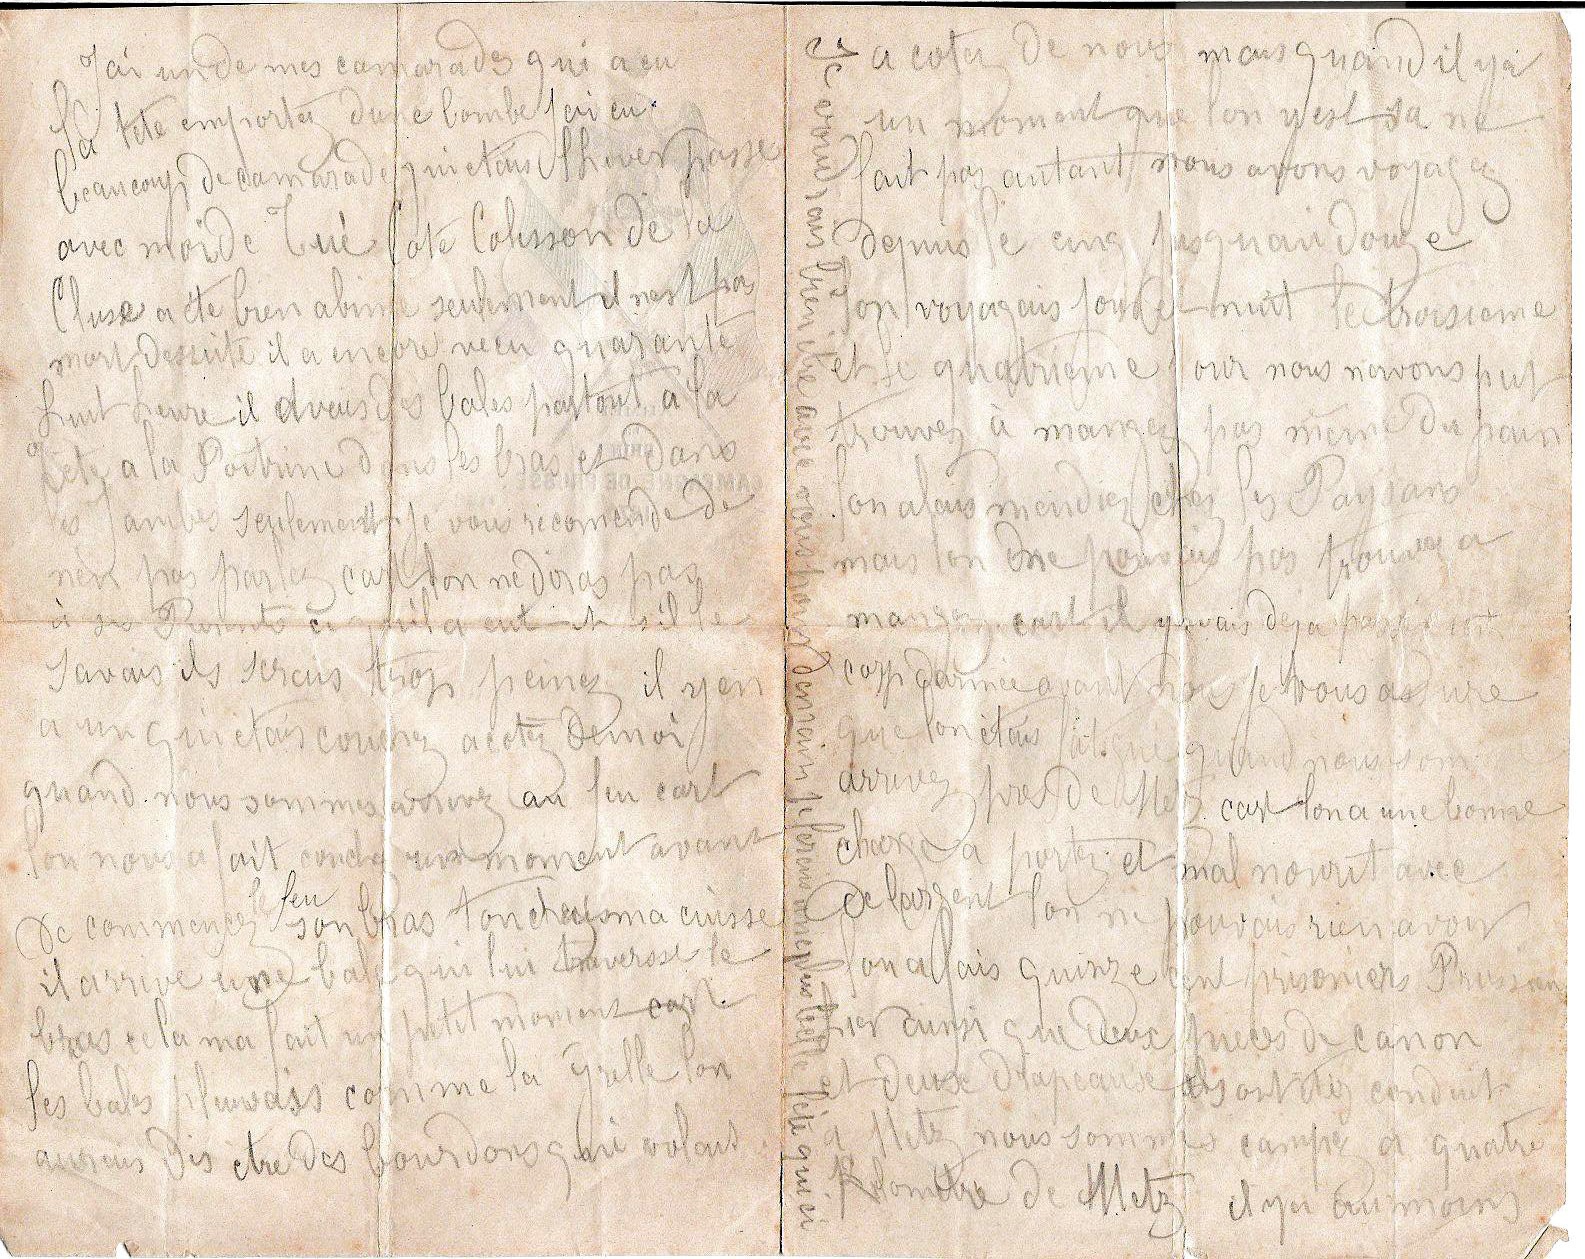 J'ai un de mes camarades qui a eu
la tete emportez dune bombe jai eu
beaucoup de camarade qui etais lhiver passe
avec moi de Tué Cote Colisson de la
Cluse a éte bien abime seulement il nest pas
mort dessuite il a encore vecu quarante
huit heure il avais des bales partout a la
tete a la Poitrine dans les bras et dans
les Jambes seulement je vous recomende de
nen pas parlez cart lon ne diras pas
à ses Parents ce quil a eut et sil le
savais ils serais trop peinez il yen
a un qui etais couchez acotez de moi
quand nous sommes arrivez au feu cart
lon nous a fait couche un moment avant
de commencez le feu son bras touchais ma cuisse
il arrive une bale qui lui traverse le
bras cela ma fait un petit moment cart
les bales pleuvais comme la Grelle lon
aurais dis etre des bourdons qui volait
a cotez de nous mais quand il ya
un moment que lon yest sa ne
fait pas autant nous avons voyagez
depuis le cinq jusquau douze
lon voyagais jour et nuit le troisieme
et le quatrieme jour nous navons put
trouvez à mangez pas meme du pain
lon alais mendiez chez les Paysans
mais lon ne pouvais pas trouvez a
mangez cart il yavais deja passé
corp darmée avant nous je vous assure
que lon étais fatigué quand nous som
arrivez pres de Metz cart lon a une bonne
charge a portez et mal nourit avec
de largent lon ne pouvais rien avoir
lon a fais quinze cent prisoniers Prussien
hier ainsi que deux pieces de canon
et deux drapeaux ils ont étez conduit
a Metz nous sommes campez a quatre
Kilometre de Metz il ya au moins
Je voudrais bien etre avec vous pour demain je ferais une plus belle fete qu'ici